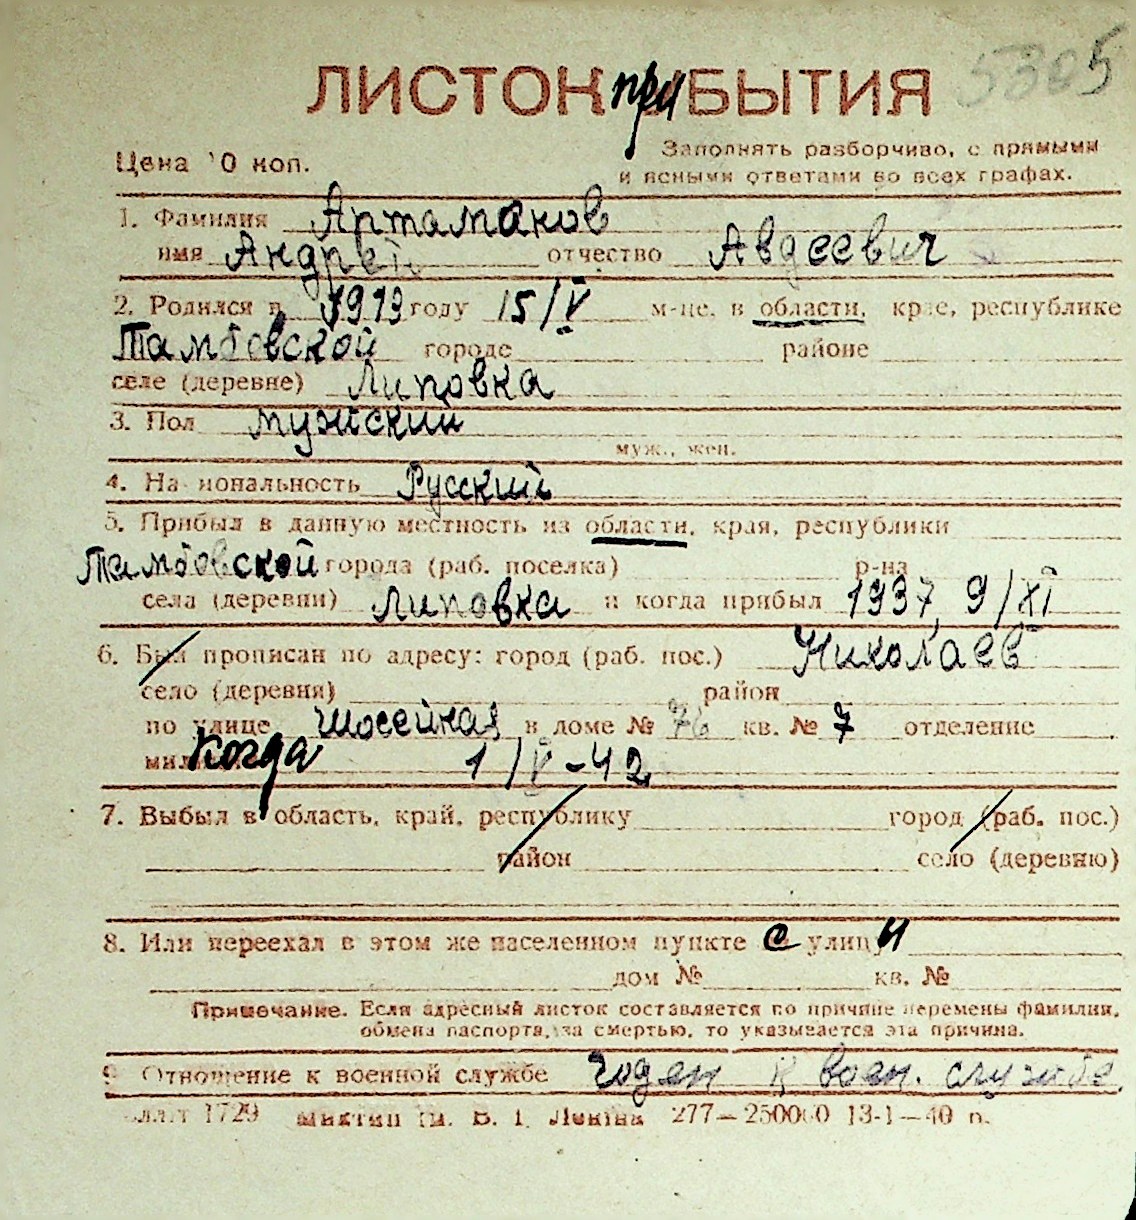 5305
ЛИСТОК при БЫТИЯ
Цена 10 коп.
Заполнять разборчиво, с прямыми
и ясными ответами во всех графах.
1. Фамилия Артаманов
имя Андрей отчество Авдеевич
2. Родился в 1919 году 15/V м-це, в области, крае, республике
Тамбовской городе районе
селе (деревне) Липовка
3. Пол мужский
муж., жен.
4. Национальность Русский
5. Прибыл в данную местность из области, края, республики
Тамбовской города (раб. поселка) р-на
села (деревни) Липовка и когда прибыл 1937, 9/XI
6. Был прописан по адресу: город (раб. пос.) Николаев
село (деревни) район
по улице Шосейная в доме № 76 кв. № 7 отделение
Когда 1/V-42
7. Выбыл в область, край, республику город (раб. пос.)
район село (деревню)
8. Или переехал в этом же населенном пункте с улицы
дом № кв. №
Примечание. Если адресный листок составляется по причине перемены фамилии,
обмена паспорта, за смертью, то указывается эта причина.
9. Отношение к военной службе годен к воен. службе
1729 им. В. І. Леніна 277—250000 13-1—40 р.